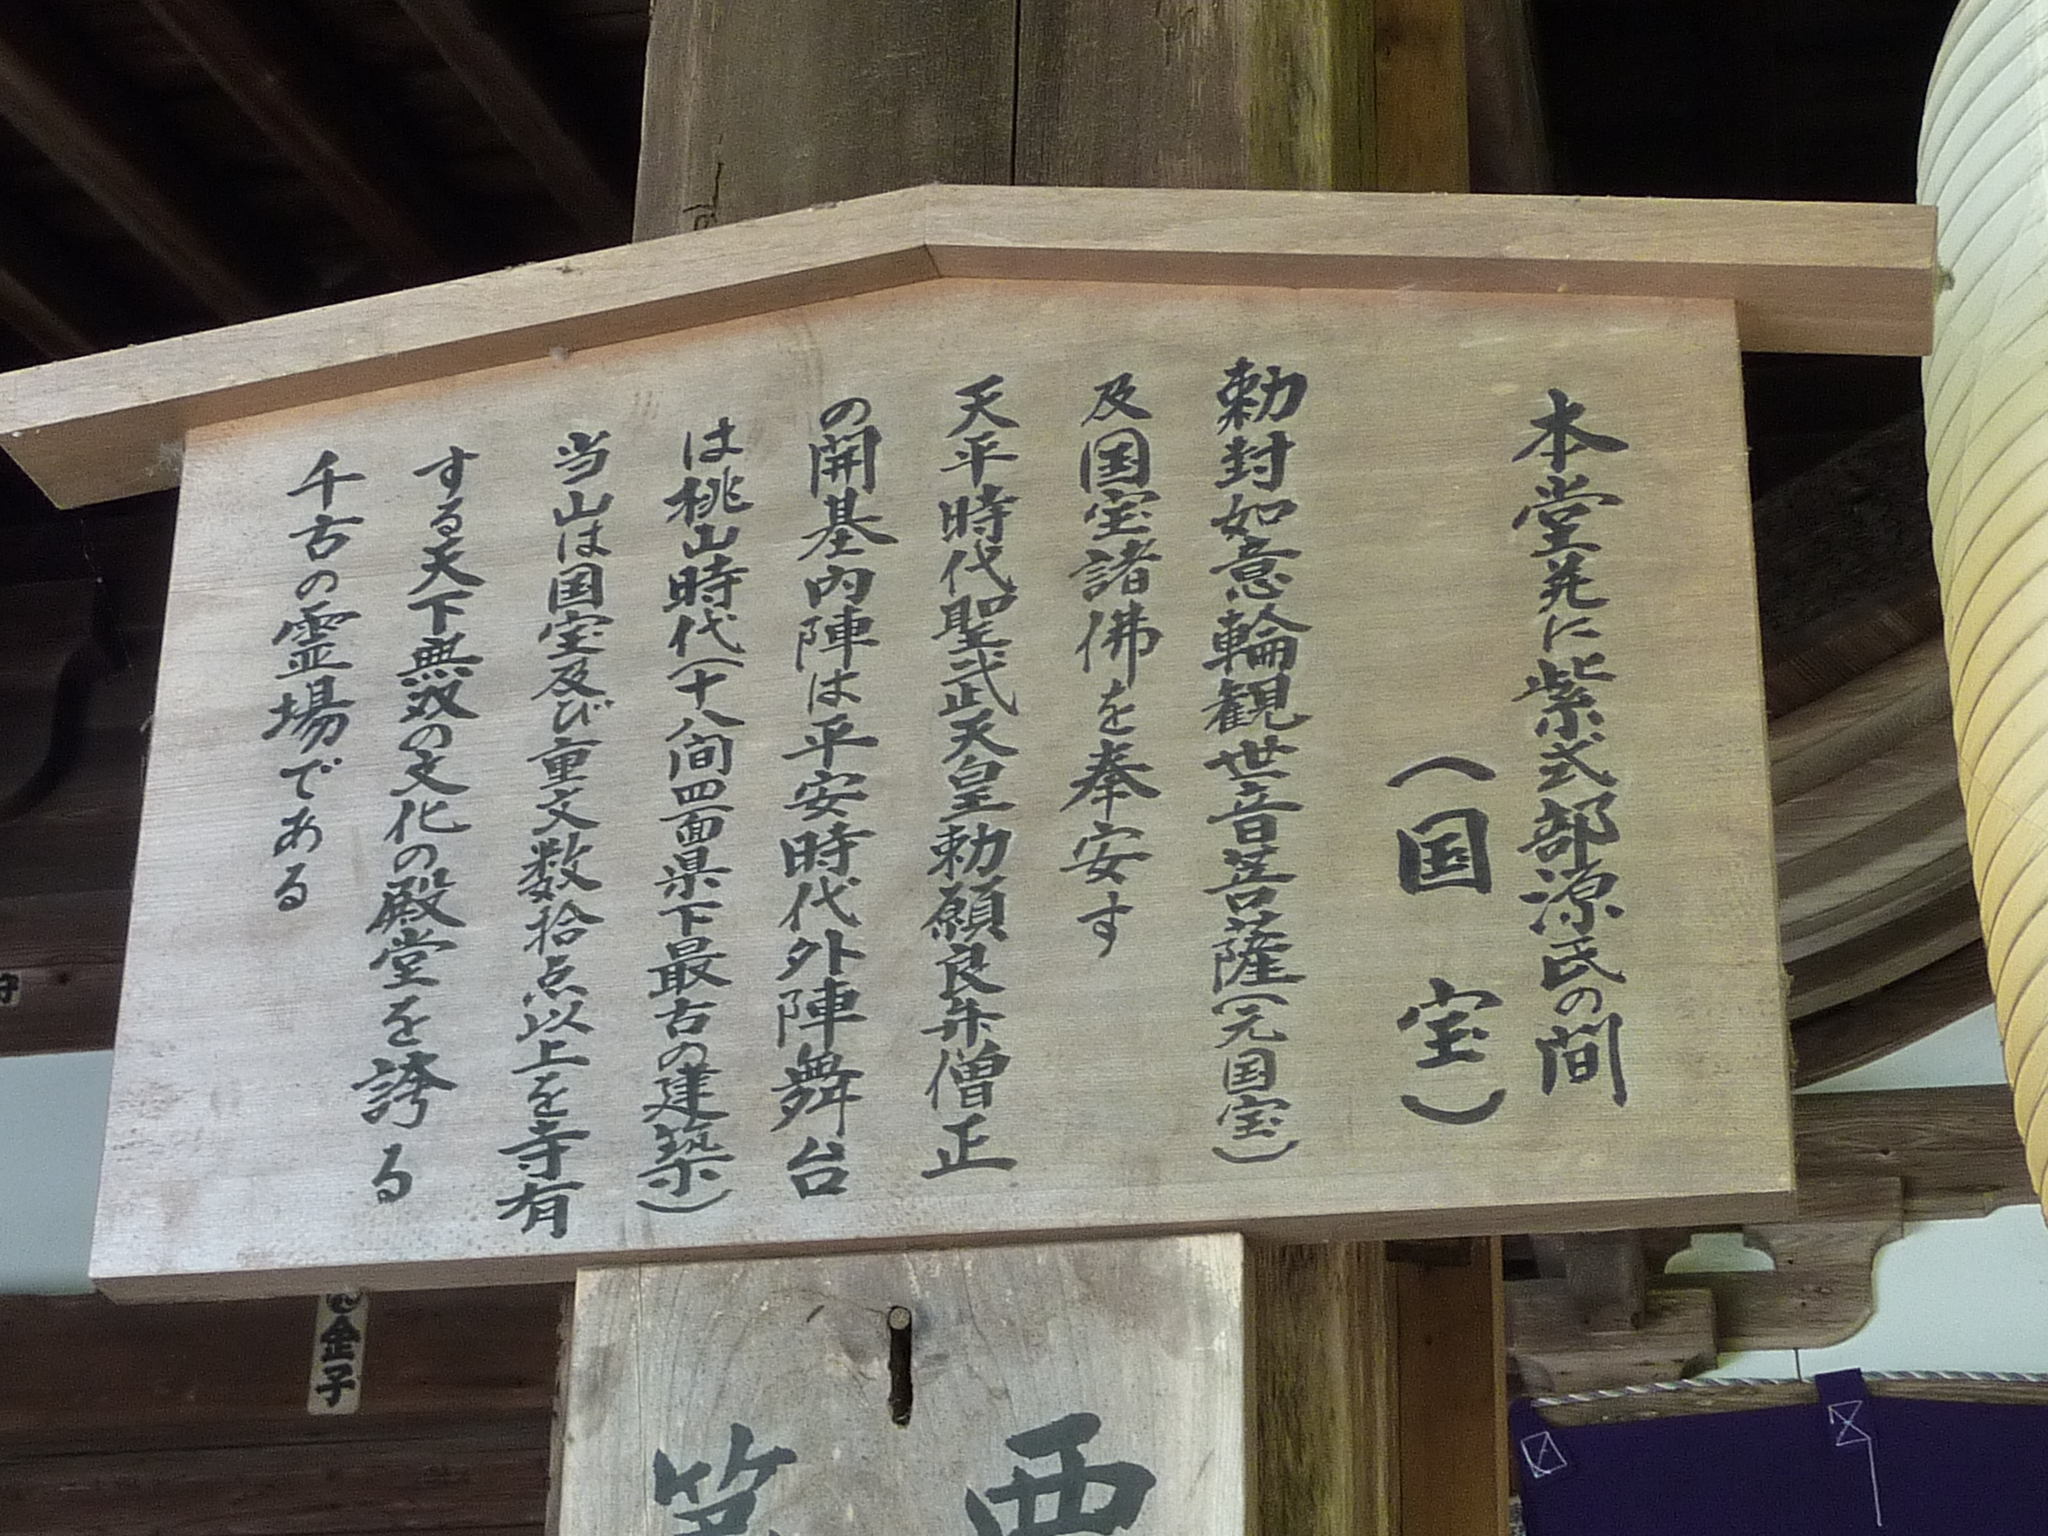 本堂並に紫式部源氏の間
（国宝）
勅封如意輪観世音菩薩（元国宝）
及国宝諸佛を奉安す
天平時代聖武天皇勅願良弁僧正
の開基内陣は平安時代外陣舞台
は桃山時代（十八間四面県下最古の建築）
当山は国宝及び重文数拾点以上を寺有
する天下無双の文化の殿堂を誇る
千古の霊場である
西
第
金子